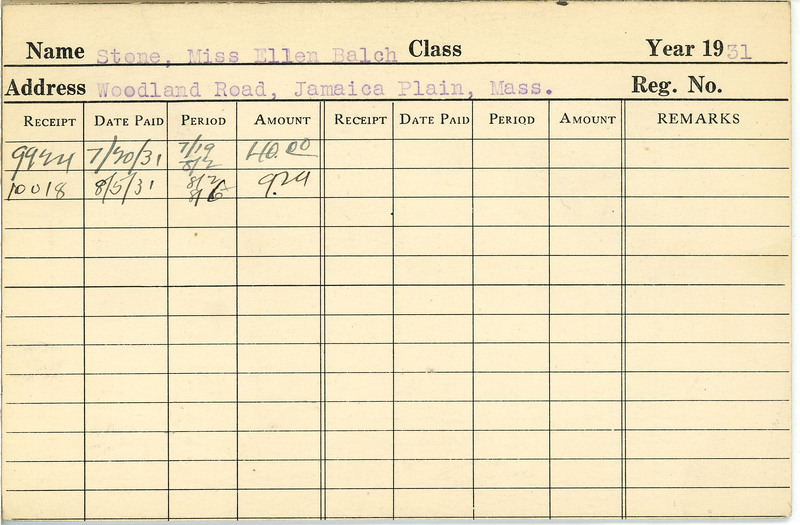 Name Stone, Miss Ellen Balch Class Year 1931
Address Woodland Road, Jamaica Plain, Mass. Reg. No.
RECEIPT DATE PAID PERIOD AMOUNT RECEIPT DATE PAID PERIOD AMOUNT REMARKS
7/19
7/20/31 40.00
8/2
8/2
10018 8/5/31
8/6